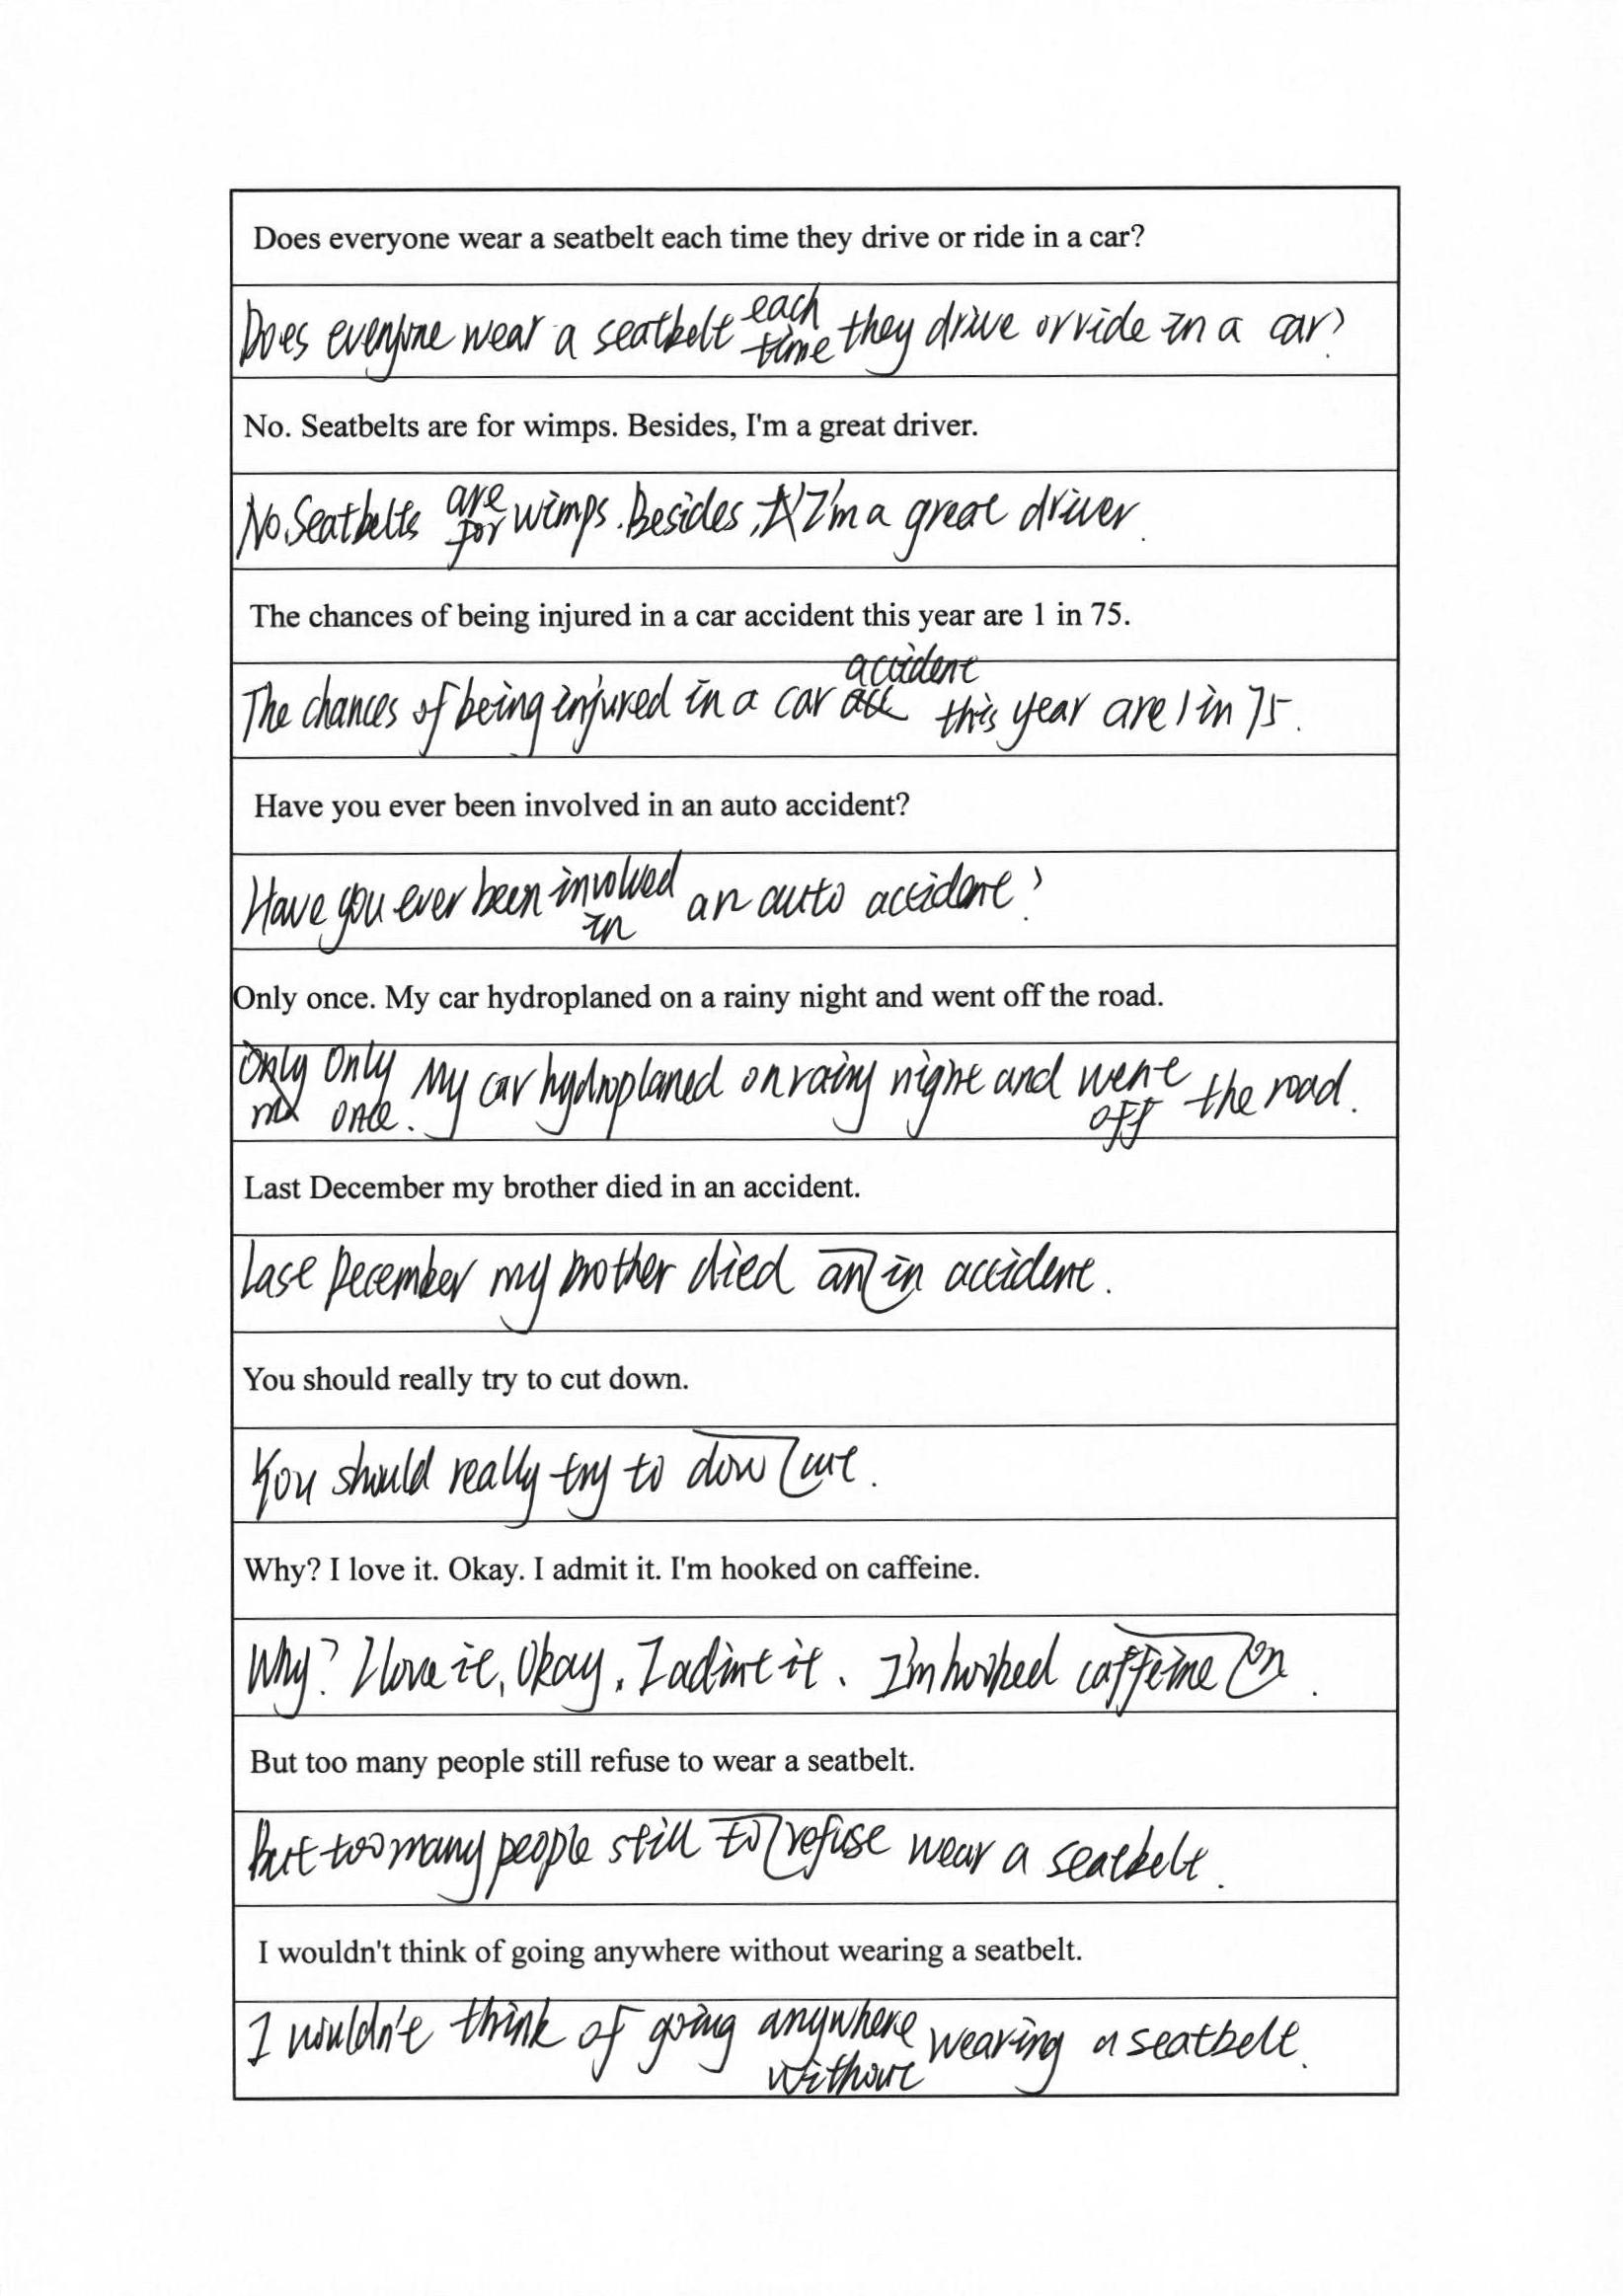 Does everyone wear a seatbelt each time they drive or ride in a car?
Does everyone wear a seatbelt each time they drive or ride in a car?
No. Seatbelts are for wimps. Besides, I'm a great driver.
No. Seatbelts are for wimps. Besides, I'm a great driver.
The chances of being injured in a car accident this year are 1 in 75.
The chances of being injured in a car accident this year are 1 in 75.
Have you ever been involved in an auto accident?
Have you ever been involved in an auto accident?
Only once. My car hydroplaned on a rainy night and went off the road.
Only once. My car hydroplaned on rainy night and went off the road.
Last December my brother died in an accident.
Last December my brother died in an accident.
You should really try to cut down.
You should really try to cut dow.
Why? I love it. Okay. I admit it. I'm hooked on caffeine.
Why? I love it. Okay. I adimt it. I'm hooked on caffeine.
But too many people still refuse to wear a seatbelt.
But too many people still refuse to wear a seatbelt.
I wouldn't think of going anywhere without wearing a seatbelt.
I wouldn't think of going anywhere without wearing a seatbelt.